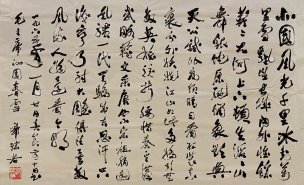 北國風光千里冰封萬
里雪飄望長城內外惟餘莽
莽大河上下頓失滔滔山
舞銀蛇原馳蠟象欲與
天公試比高須晴日看紅
裝素裹分外妖嬈江山如此多嬌引無
數英雄競折腰惜秦皇漢
武略輸文采唐宗宋祖稍遜
風騷一代天驕成吉思汗只
識彎弓射大鵰俱往矣數
風流人物還看今朝
毛主席沁園春雪